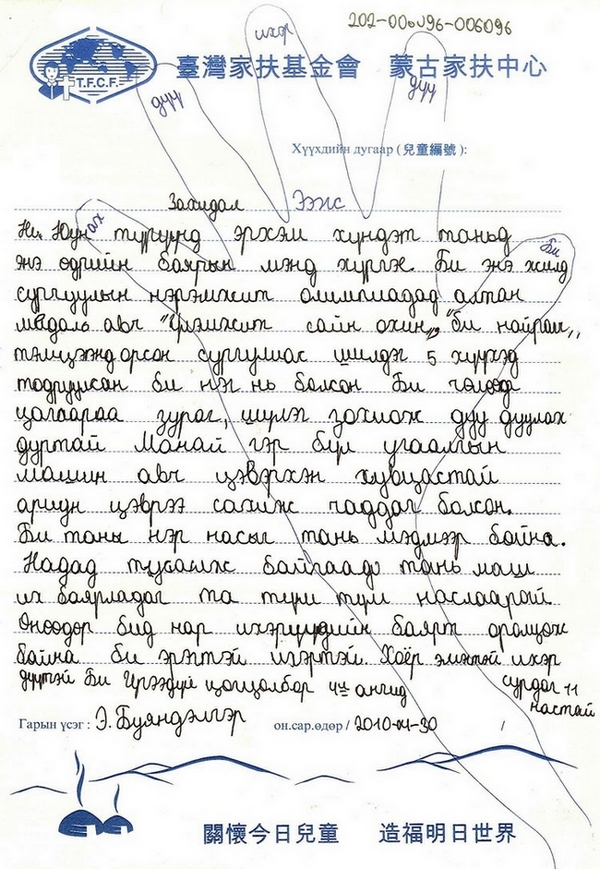 202-000096-006096
T.F.C.F.
臺灣家扶基金會 蒙古家扶中心
ихэр
дүү
дүү
Хүүхдийн дугаар (兒童編號):
Захидал Ээж
ах
Би
түрүүнд эрхэм хүндэт таньд
энэ өдрийн баярын мэнд хүргэж. Би энэ жилд
сургуулын нэрэмжит олимпиадад алтан
медаль авч "Үрэмжит сайн охин", "би найрам,,
тэмцээнд орсон сургуулиас шилдэг 5 хүүхэд
тодруулсан би нэг нь болсон Би чөлөөт
цагаараа зураг, шүлэг зохиож дуу дуулах
дуртай Манай гэр бүл угаалгын
машин авч цэвэрхэн хувцастай
ариун цэврээ сахиж чаддаг болсон.
Би таны нэр насыг тань мэдмээр байна.
Надад тусалж байгаад тань маш
их баярладаг та түмэн түмэн наслаарай.
Өнөөдөр бид нар ихэрүүдийн баярт оролцож
байна би эрэгтэй ихэртэй. Хоёр эмэгтэй ихэр
дүүтэй Би Ирээдүй цогцолбор 4-р ангид сурдаг 11
настай
Гарын үсэг : Э. Буяндэлгэр он.сар.өдөр / 2010-04-30 /
關懷今日兒童 造福明日世界